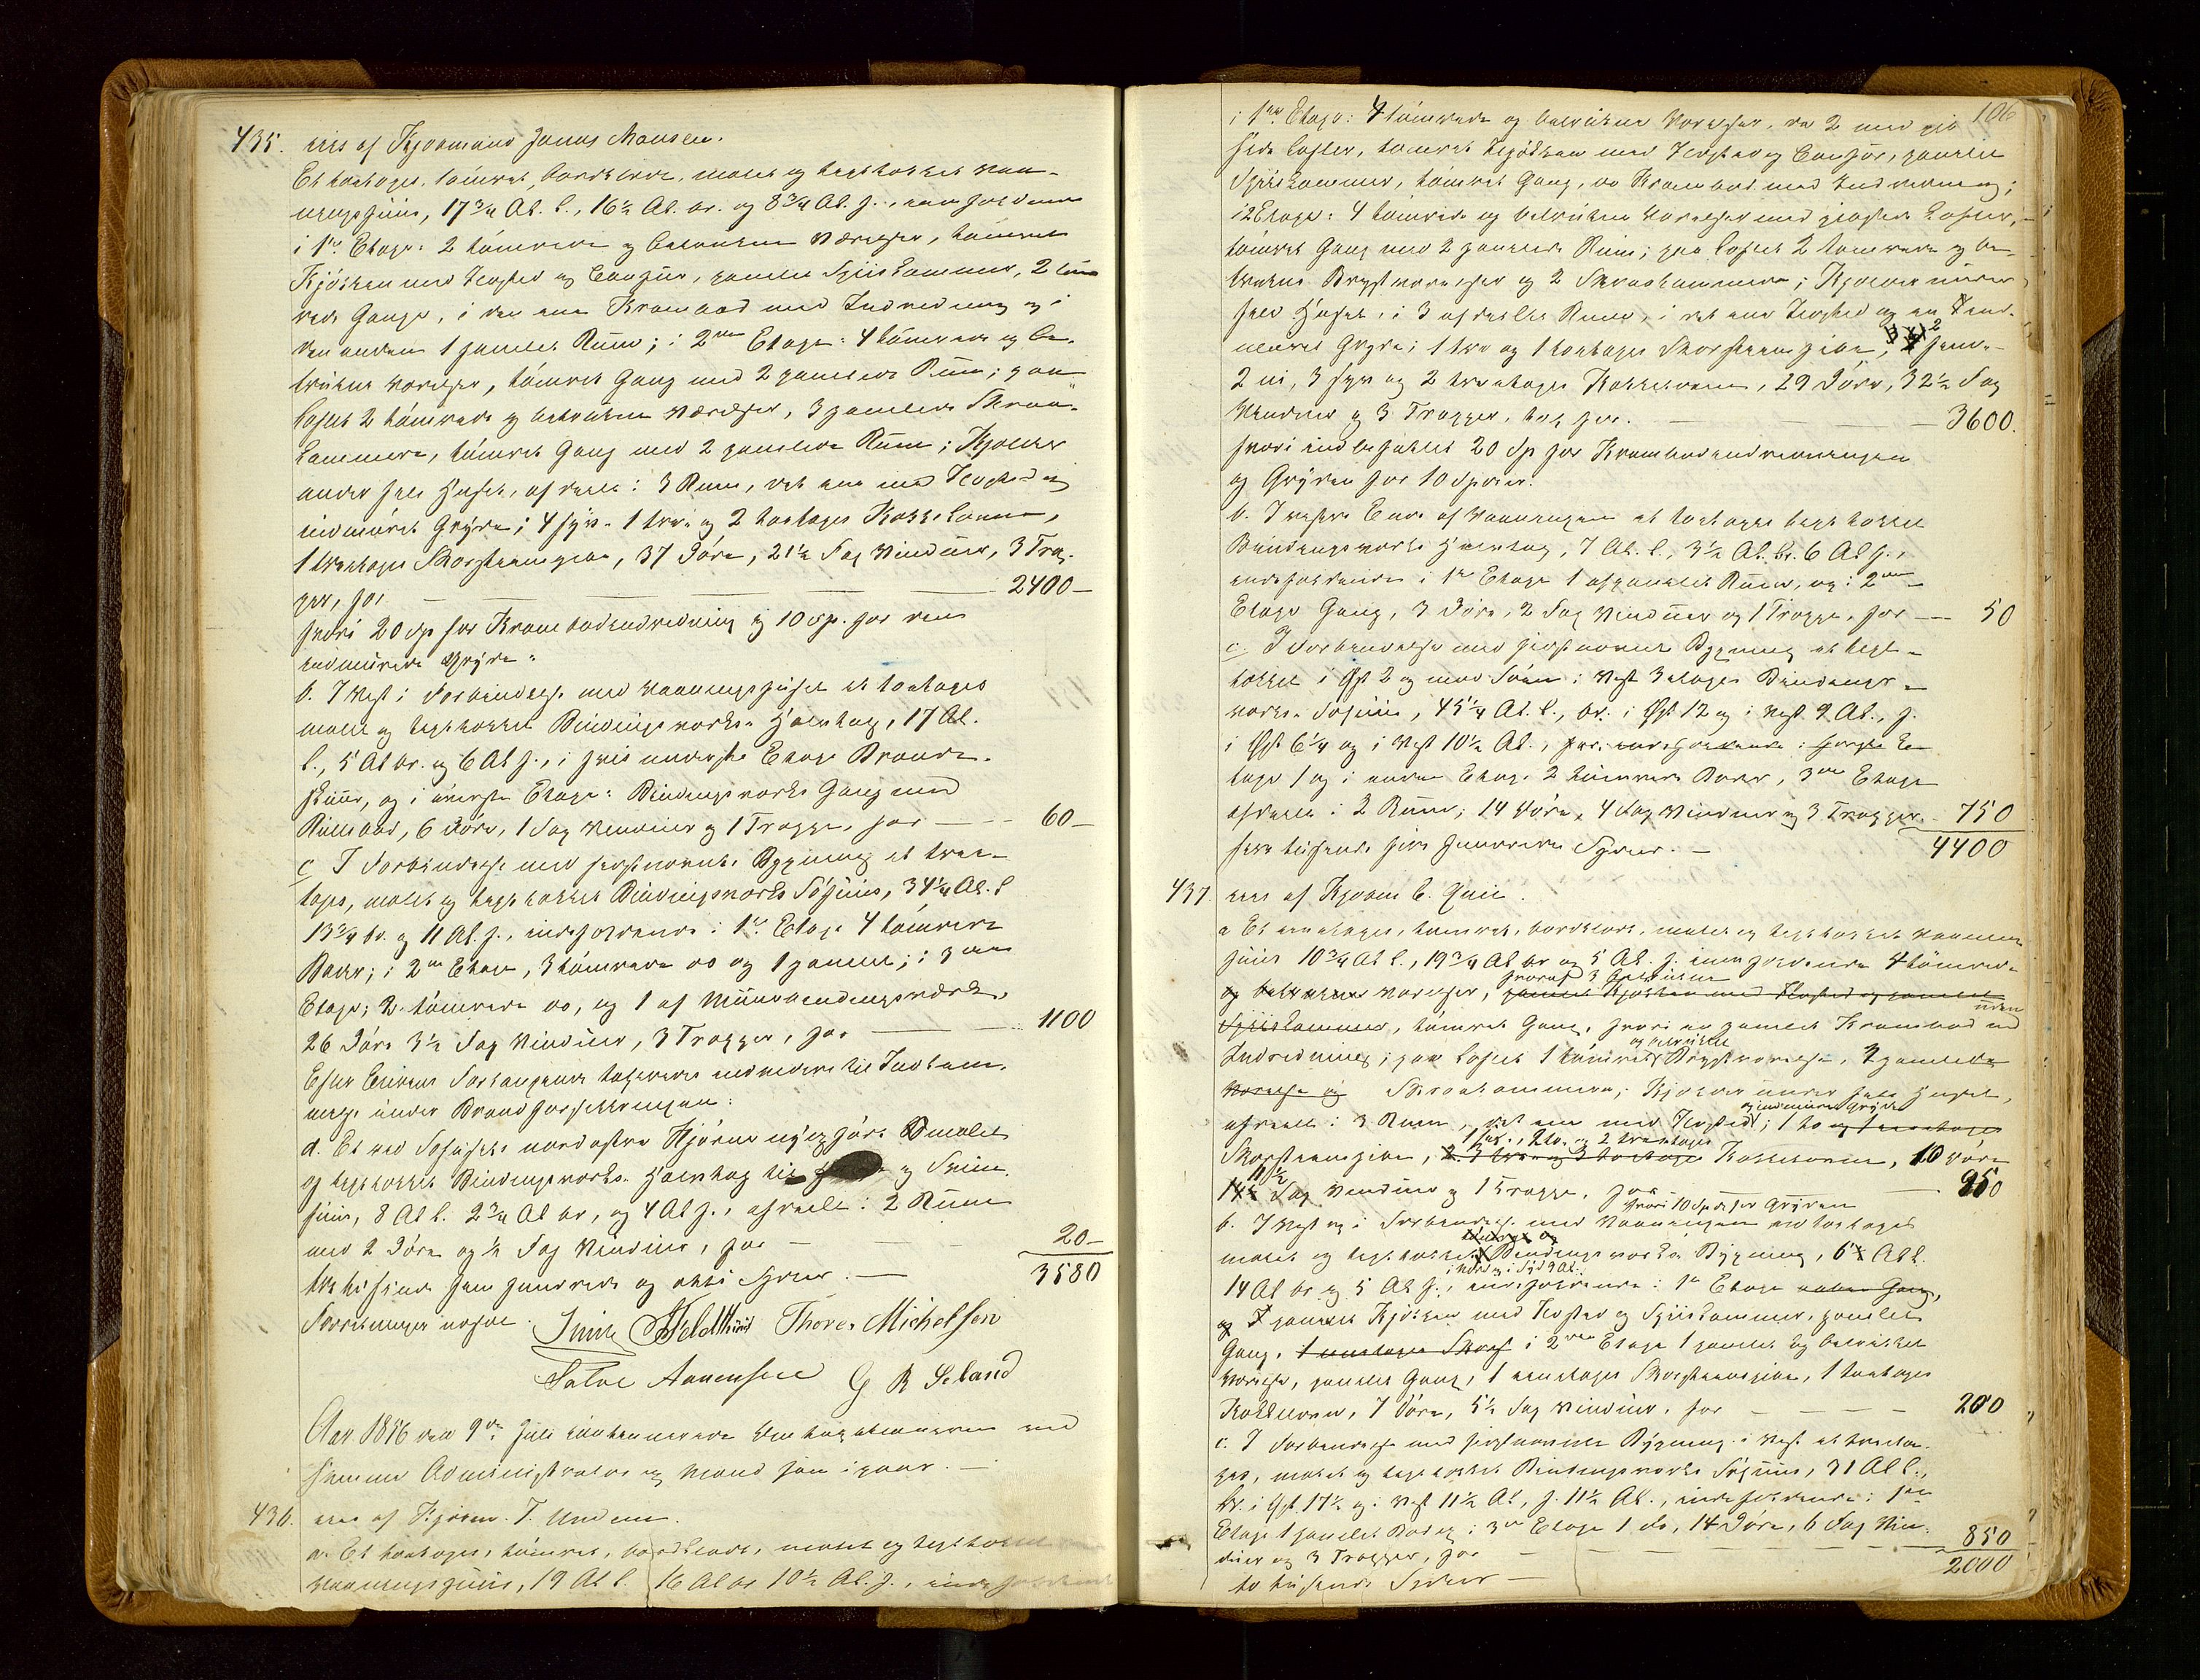 435. eies af Kjøbmand Jonas Monsen.
Et toetages, tømret, bordklædt, malet og teglhængt Vaa-
ningshuus, 17 3/4 Al. l., 16 1/2 Al. br. og 8 3/4 Al. h., indeholdende
i 1ste Etage: 2 tømrede og betrukne Værelser, tømret
Kjøkken med Ildsted og Comfur, panelet Spiiskammer, 2 tøm-
rede Gange, i den ene Krambod med Indredning og i
den anden 1 panelet Rum; i 2den Etage: 4 tømrede og be-
trukne Værelser, tømret Gang med 2 panelede Rum; paa
Loftet 2 tømrede og betrukne Værelser, 3 panelede Skraa-
kammere, tømret Gang med 2 panelede Rum; Kjelder
under hele Huset, afdeelt i 3 Rum, det ene med Ildsted og
indmuret Gryde; 4 fyr- 1 tre- og 2 toetages Kakkelovne,
1 treetages Skorsteenspibe, 37 Døre, 21 1/2 Fag Vinduer, 3 Trap-
per, for 2400 —
hvori 20 Sp. for Krambodindredning og 10 Sp. for den
indmurede Gryde.
b. I Vest i Forbindelse med Vaaningshuset et toetages
malet og teglhængt Bindingsværks Halvtag, 17 Al.
l., 5 Al br. og 6 Al h., i hvis underste Etage Brænde-
skuur, og i øverste Etage: Bindingsværks Gang med
Rullebod, 6 Døre, 1 Fag Vinduer og 1 Trappe, for 60 —
c I Forbindelse med sidstnævnte Bygning et tree-
tages, malet og teglhængt Bindingsværks Søhuus, 34 1/4 Al. l
13 3/4 br. og 11 Al. h., indeholdende i 1ste Etage 4 tømrede
Boder; i 2den Etage, 3 tømrede do og 1 panelet; i 3die
Etage; 2 tømrede do, og 1 af Muurbindingsværk,
26 Døre 3 1/2 Fag Vinduer, 3 Trapper, for 1100
Efter Eierens Forlangende taxeredes endvidere til Indlem-
melse under Brandforsikkringen:
d. Et ved Søhusets nordøstre Hjørne nyopført malet
og teglhængt Bindingsværks Halvtag til og Sviin-
huus, 8 Al l. 2 3/4 Al br, og 4 Al h., afdeelt i 2 Rum
med 2 Døre og 1/2 Fag Vinduer, for 20 —
tre tusinde fem hundrede og otti Spdlr. — 3580
Forretningen sluttet. Feldthuus Thore Michelsen
Salve Aanensen G R Seland
Aar 1856 den 9de Juli continueredes Omtaxationen med
samme Administrator og Mænd som igaar. —
436. eies af Kjøbm. T. Unden.
a. Et toetages, tømret, bordklædt, malet og teglhængt
Vaaningshuus, 19 Al l. 16 Al br 10 1/2 Al. h., indeholdende
106
i 1ste Etage: 4 tømrede og betrukne Værelser, de 2 med gib-
sede Lofter, tømret Kjøkken med Ildsted og Comfur, panelet
Spiiskammer, tømret Gang, do Krambod med Indredning;
i 2 Etage: 4 tømrede og betrukne Værelser med gibsede Lofter,
tømret Gang med 2 panelede Rum; paa Loftet 2 tømrede og be-
trukne Brystværelser og 2 Skraakammere; Kjelder under
hele Huset, i 3 afdeelte Rum, i det ene Ildsted og en Ind-
muret Gryde; 1 tre og 1 toetages Skorsteenspibe, 2 fem-
2 ni, 3 fyr og 2 treetages Kakkelovne, 29 Døre, 32 1/2 Fag
Vinduer og 3 Trapper, tax. for. 3600.
hvori indbefattet 20 Sp for Krambodindredningen
og Gryden for 10 Spdlr.
b. I vestre Ende af Vaaningen et toetages teglhængt
Bindingsværks Halvtag, 7 Al. l., 3 1/2 Al. br. 6 Al h.,
indeholdende i 1ste Etage 1 afpanelet Rum, og i 2den
Etage Gang, 3 Døre, 2 Fag Vinduer og 1 Trappe, for — 50
c. I Forbindelse med sidstnævnte Bygning et tegl-
hængt i Øst 2 og mod Søen i Vest 3 etages Bindings-
værks Søhuus, 45 1/4 Al. l., br. i Øst 12 og i Vest 9 Al., h.
i Øst 6 1/4 og i Vest 10 1/2 Al., indeholdende i første E-
tage 1 og i anden Etage 2 tømrede Boder, 3die Etage
afdeelt i 2 Rum; 14 Døre, 4 Fag Vinduer og 3 Trapper. 750
fire tusinde fire hundrede Spdlr. — 4400
437. eies af Kjøbm C.
a Et eenetages, tømret, bordklædt, malet og teglhængt Vaanings-
huus 10 3/4 Al l., 19 3/4 Al br og 5 Al. h. indeholdende 4 tømrede
hvoraf 3 betrukne
og betrukne Værelser, panelet Kjøkken med Ildsted og panelet
uden
Spiiskammer, tømret Gang, hvori en panelet Krambod med
og betrukket
Indredning; paa Loftet 1 tømret Brystværelse, 2 panelede
Værelse og Skraakammere; Kjelder under hele Huset,
og indmuret Gryde
afdeelt i 3 Rum, det ene med Ildsted; 1 to og 1 eenetages
1 fir-, 2 to- og 2 treetages
Skorsteenspibe, 2. 3 tre og 3 toetages Kakkelovne, 10 Døre
11 1/2
Fag Vinduer og 1 Trappe, for 950
hvori 10 Spd for Gryden
b. I Vest og i Forbindelse med Vaaningen en toetages
malet og teglhængt Bindingsværks Bygning, 6 Al l.
i Nord og i Syd 9 Al.
14 Al br og 5 Al h., indeholdende i 1ste Etage
og 1 panelet Kjøkken med Ildsted og Spiiskammer, panelet
Gang, i 2den Etage 1 panelet og betrukket
Værelse, panelet Gang, 1 eenetages Skorsteenspibe, 1 toetages
Kakkelovn, 7 Døre, 5 1/2 Fag Vinduer, for 200
c. I Forbindelse med sidstnævnte Bygning i Vest et treeta-
ges, malet og teglhængt Bindingsværks Søhuus, 31 Al l.,
br. i Øst 17 1/2 og i Vest 11 1/2 Al, h. 11 1/2 Al., indeholdende i 1ste
Etage 1 panelet Bod og i 3die Etage 1 do, 14 Døre, 6 Fag Vin-
duer og 3 Trapper, for 850
to tusinde Spdlr — 2000